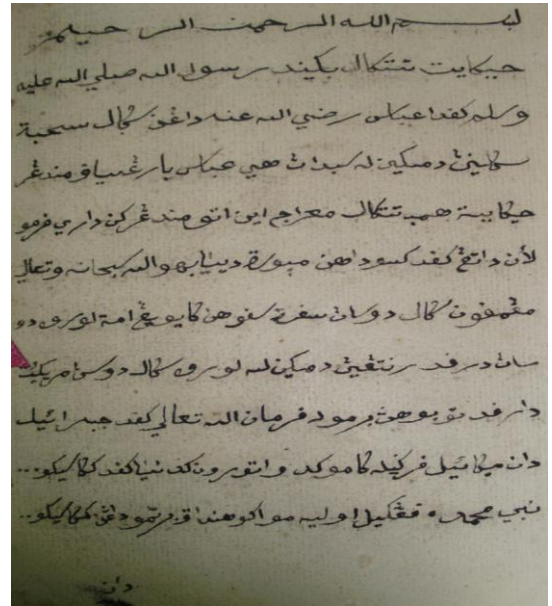 بسم الله الرحمن الرحيم
حكايت تتكال بكيند رسول الله صلي الله عليه
وسلم كفد عباس رضي الله عنه داغن سكال سحبة
سكلين دمكين له سبدات هي عباس بارغسياف مندغر
حكاية همب تتكال معراج اين اتو مندغركن داري فرمو
لأن داتغ كفد سودا هن ... سبحانه وتعالي
... سكال دوسان سفرة سفوهن كايو يغ امة لورو دو
سان درفد رنتغن دمكين له لورو سكال دوس مريكئت
درفد توبوهن برمول فرمان الله تعالي كفد جبرائيل
دان ميكائيل فركيله كامو كدوا تورون كدنيا كفد ككاسيكو...
نبي محمد ... فغكيل اوليه مو اكو هندق برتمو داغن ككاسيكو...
دان